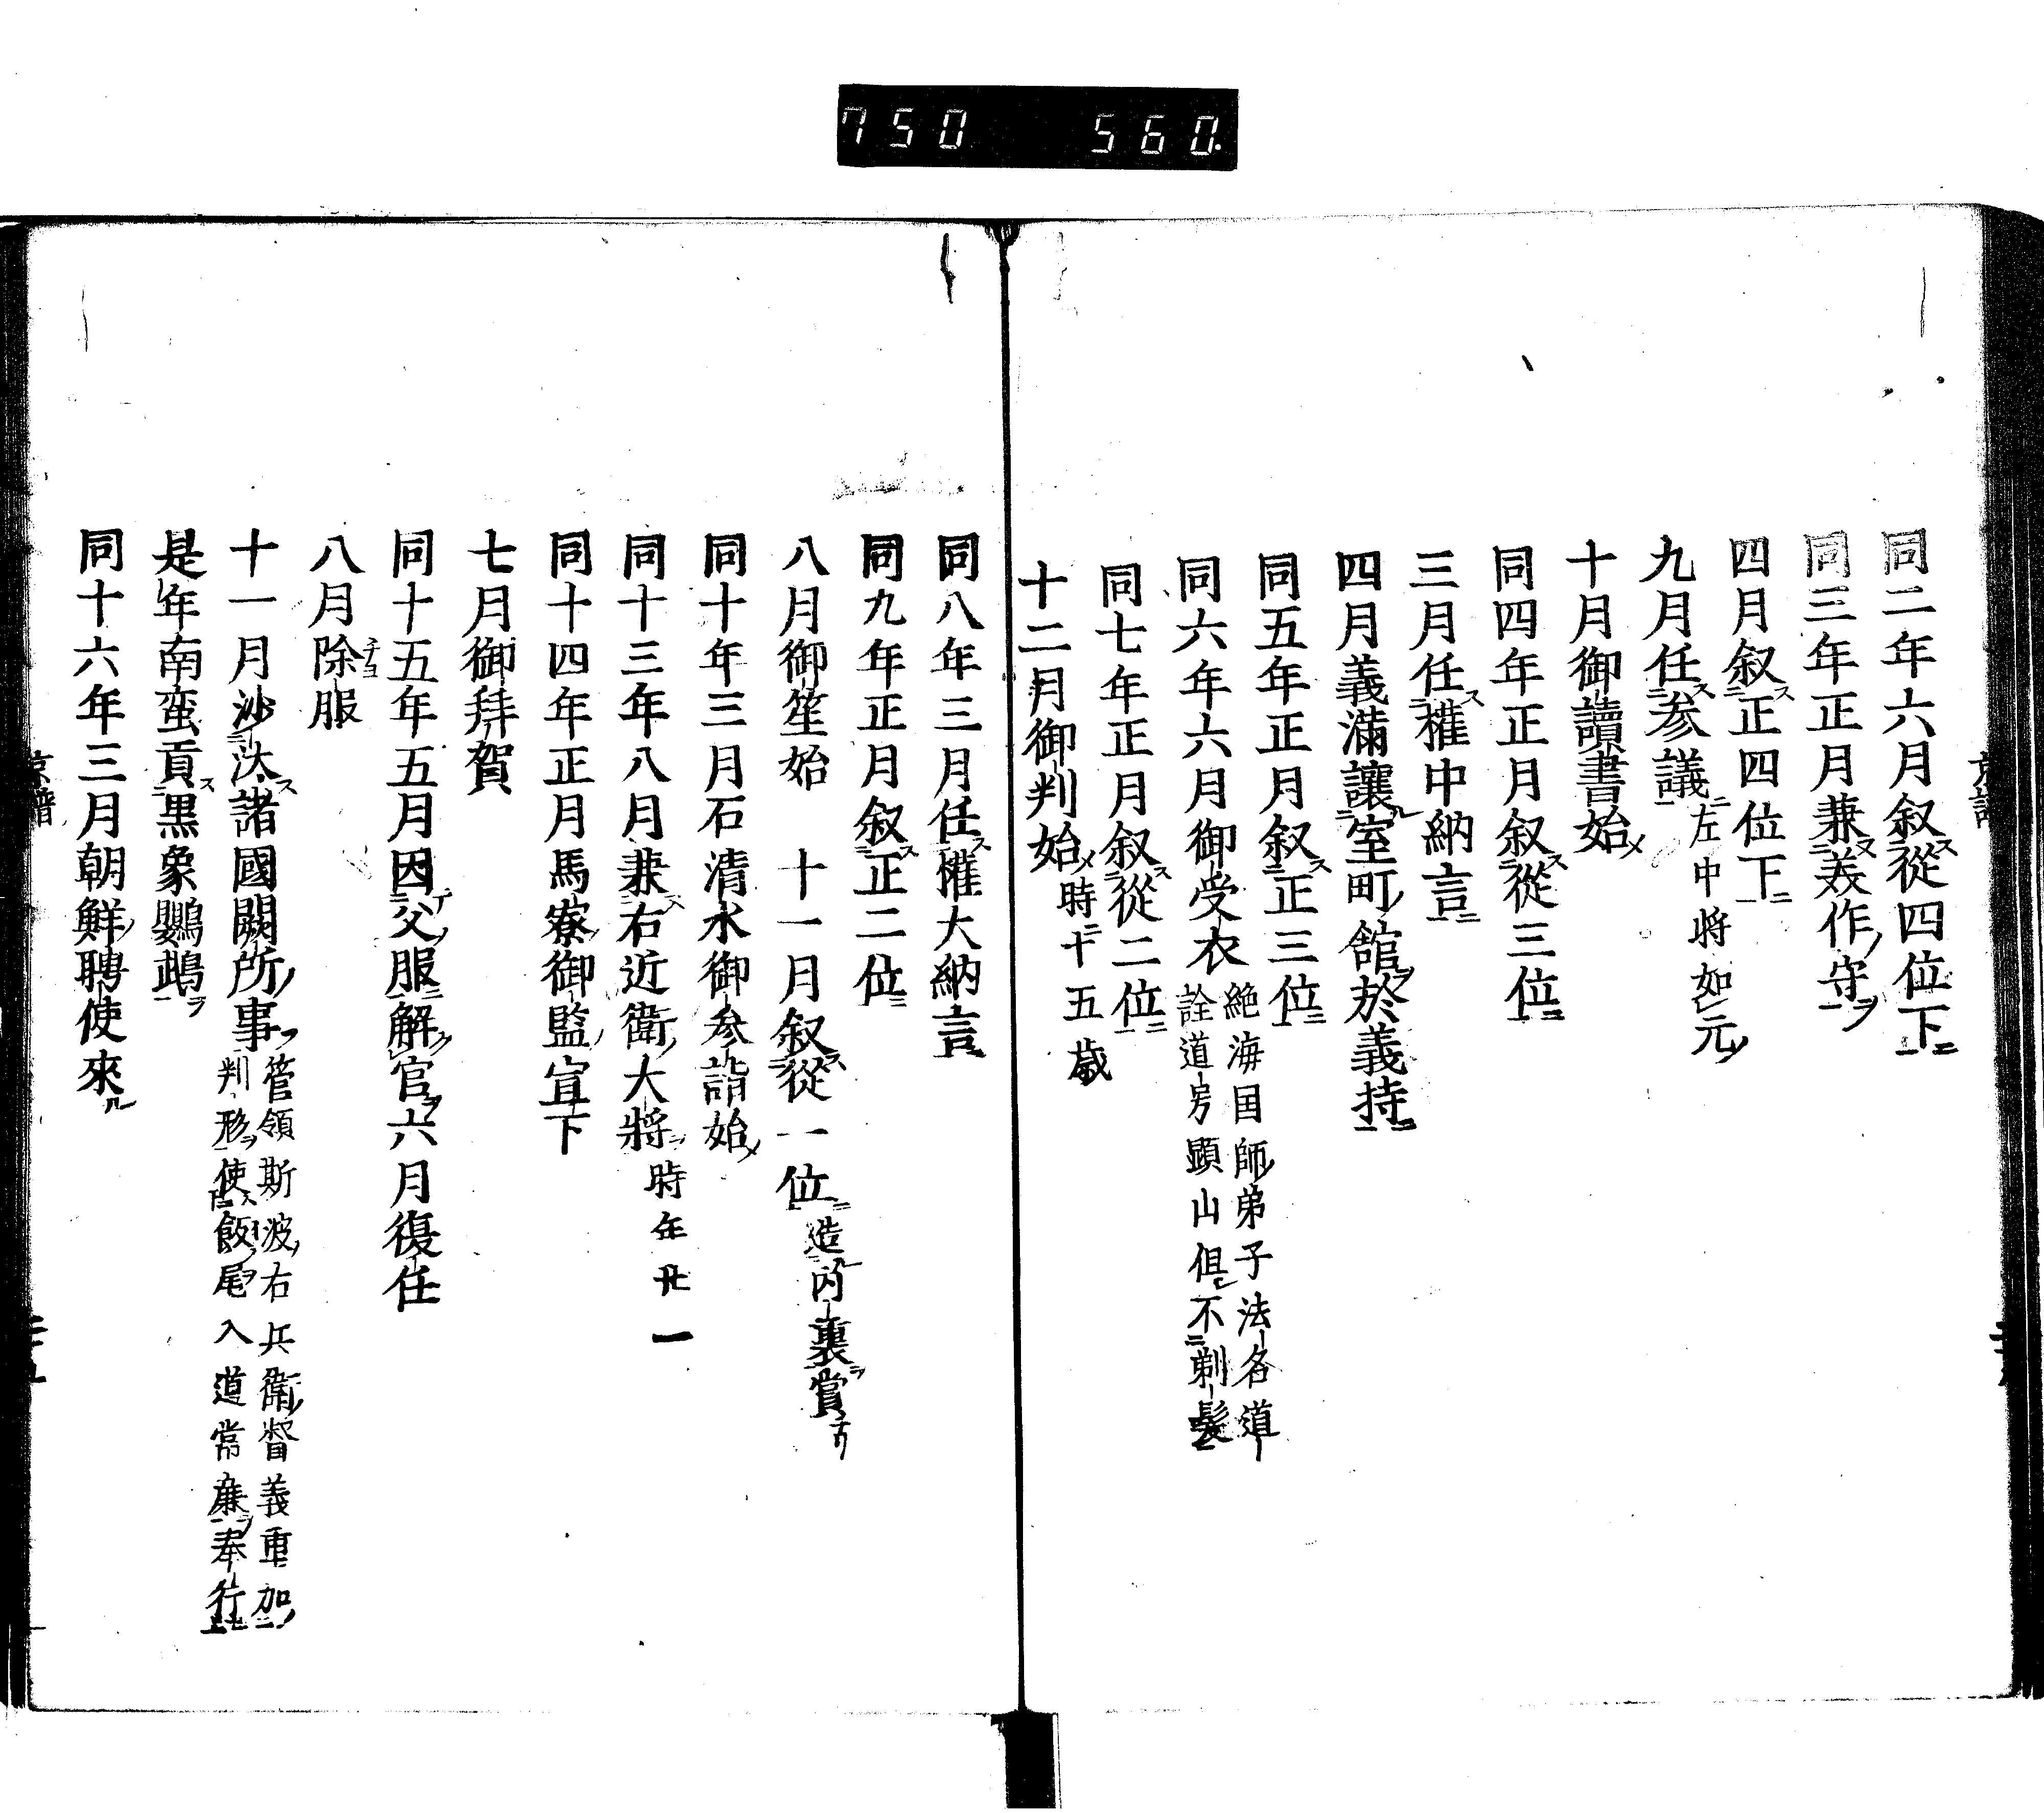 750 560.
同二年六月叙從四位下
同三年正月兼美作守
四月叙正四位下
九月任参議左中將如元
十月御讀書始
同四年正月叙從三位
三月任權中納言
四月義滿讓室町舘於義持
同五年正月叙正三位
同六年六月御受衣絶海国師弟子法名道
詮道号顯山但不剃髮
同七年正月叙從二位
十二月御判始時十五歳
同八年三月任權大納言
同九年正月叙正二位
八月御笙始 十一月叙從一位造内裏賞
同十年三月石清水御参詣始
同十三年八月兼右近衛大將時年廿一
同十四年正月馬寮御監宣下
七月御拜賀
同十五年五月因父服解官六月復任
八月除服
十一月沙汰諸國闕所事管領斯波右兵衛督義重加
判形使飯尾入道常廉奉行
是年南蛮貢黒象鸚鵡
同十六年三月朝鮮聘使來